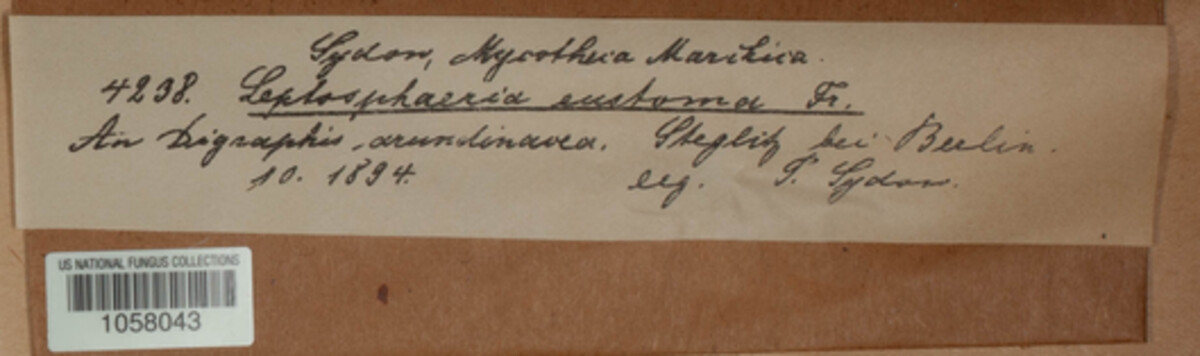 Sydow, Mycotheca Marchica.
4238. Leptosphaeria eustoma Fr.
An Digraphis arundinacea. Steglitz bei Berlin.
10. 1894. leg. P. Sydow.
US NATIONAL FUNGUS COLLECTIONS
1058043